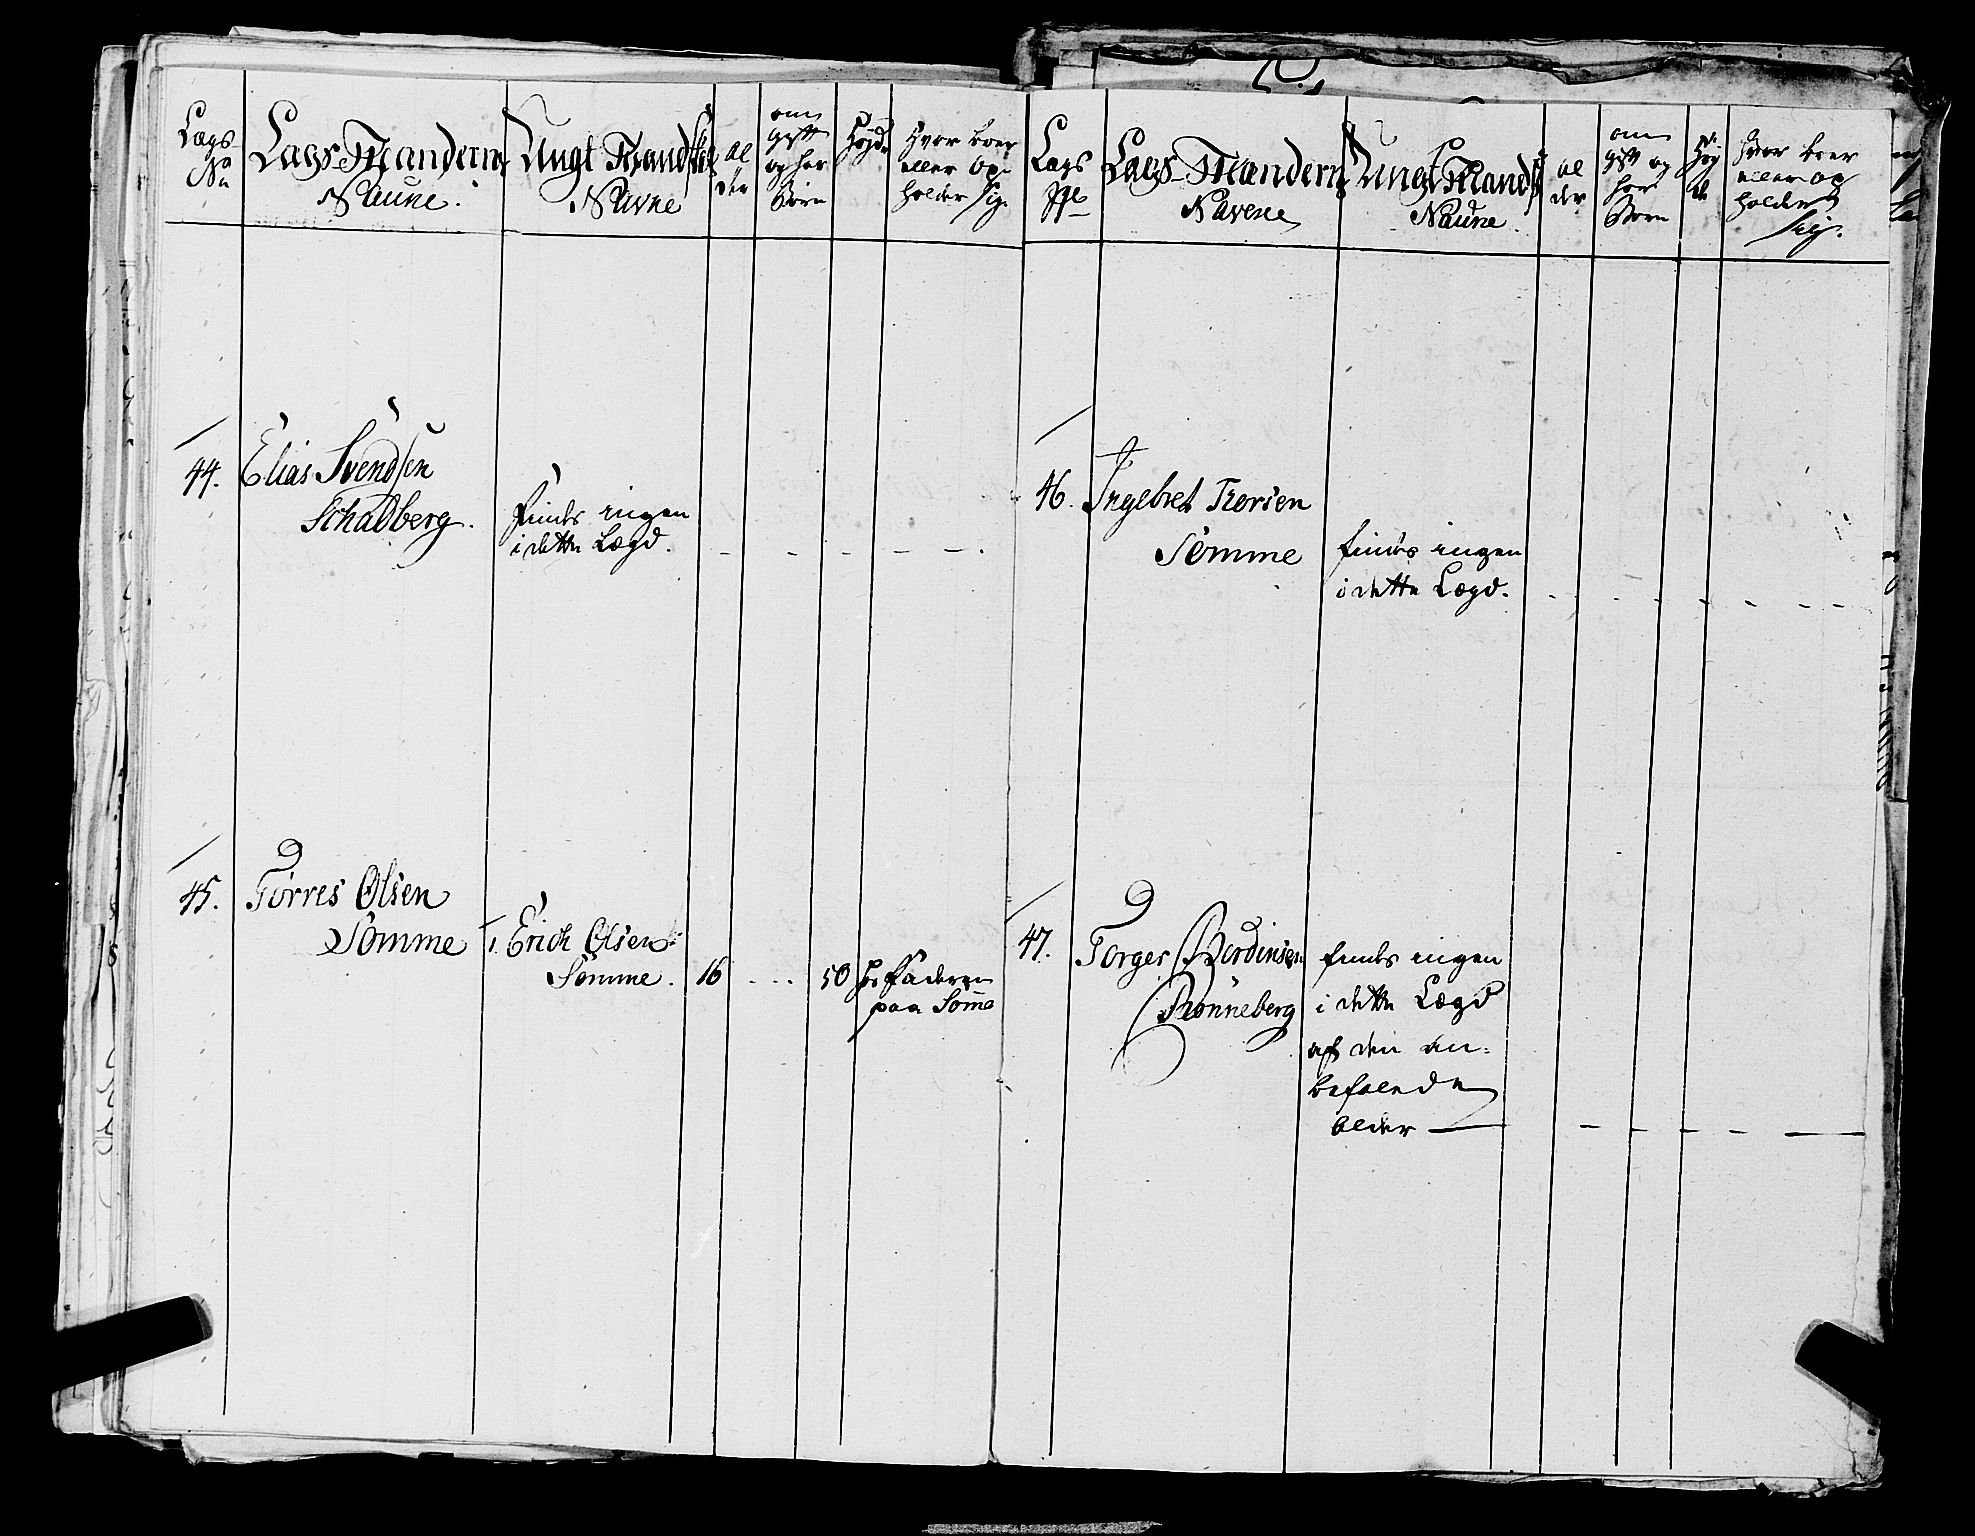 Lægs
No
Lægs Mandens
Naune.
Ungt Mandskab
Navne
al
der
om
gift
og har
Børn
Høyde
Hvor boer
eller Op-
holder sig.
44. Elias Svendsen
Schadberg.
findes ingen
i dette Lægd.
45. Torres Olsen
Somme
1. Erich Olsen
Somme. 16 50 hos Faderen
paa Somme
Lægs
Lægs Mandens
Navene
Ungt Mands
Naune.
al
der
om
gift og
har
Børn
Høy
de
Hvor boer
eller op
holder
sig.
46. Ingebret Torsen
Somme
findes ingen
i dette Lægd.
47. Torger Bordinsen
Rønneberg
findes ingen
i dette Lægd
af den an-
befalede
Alder